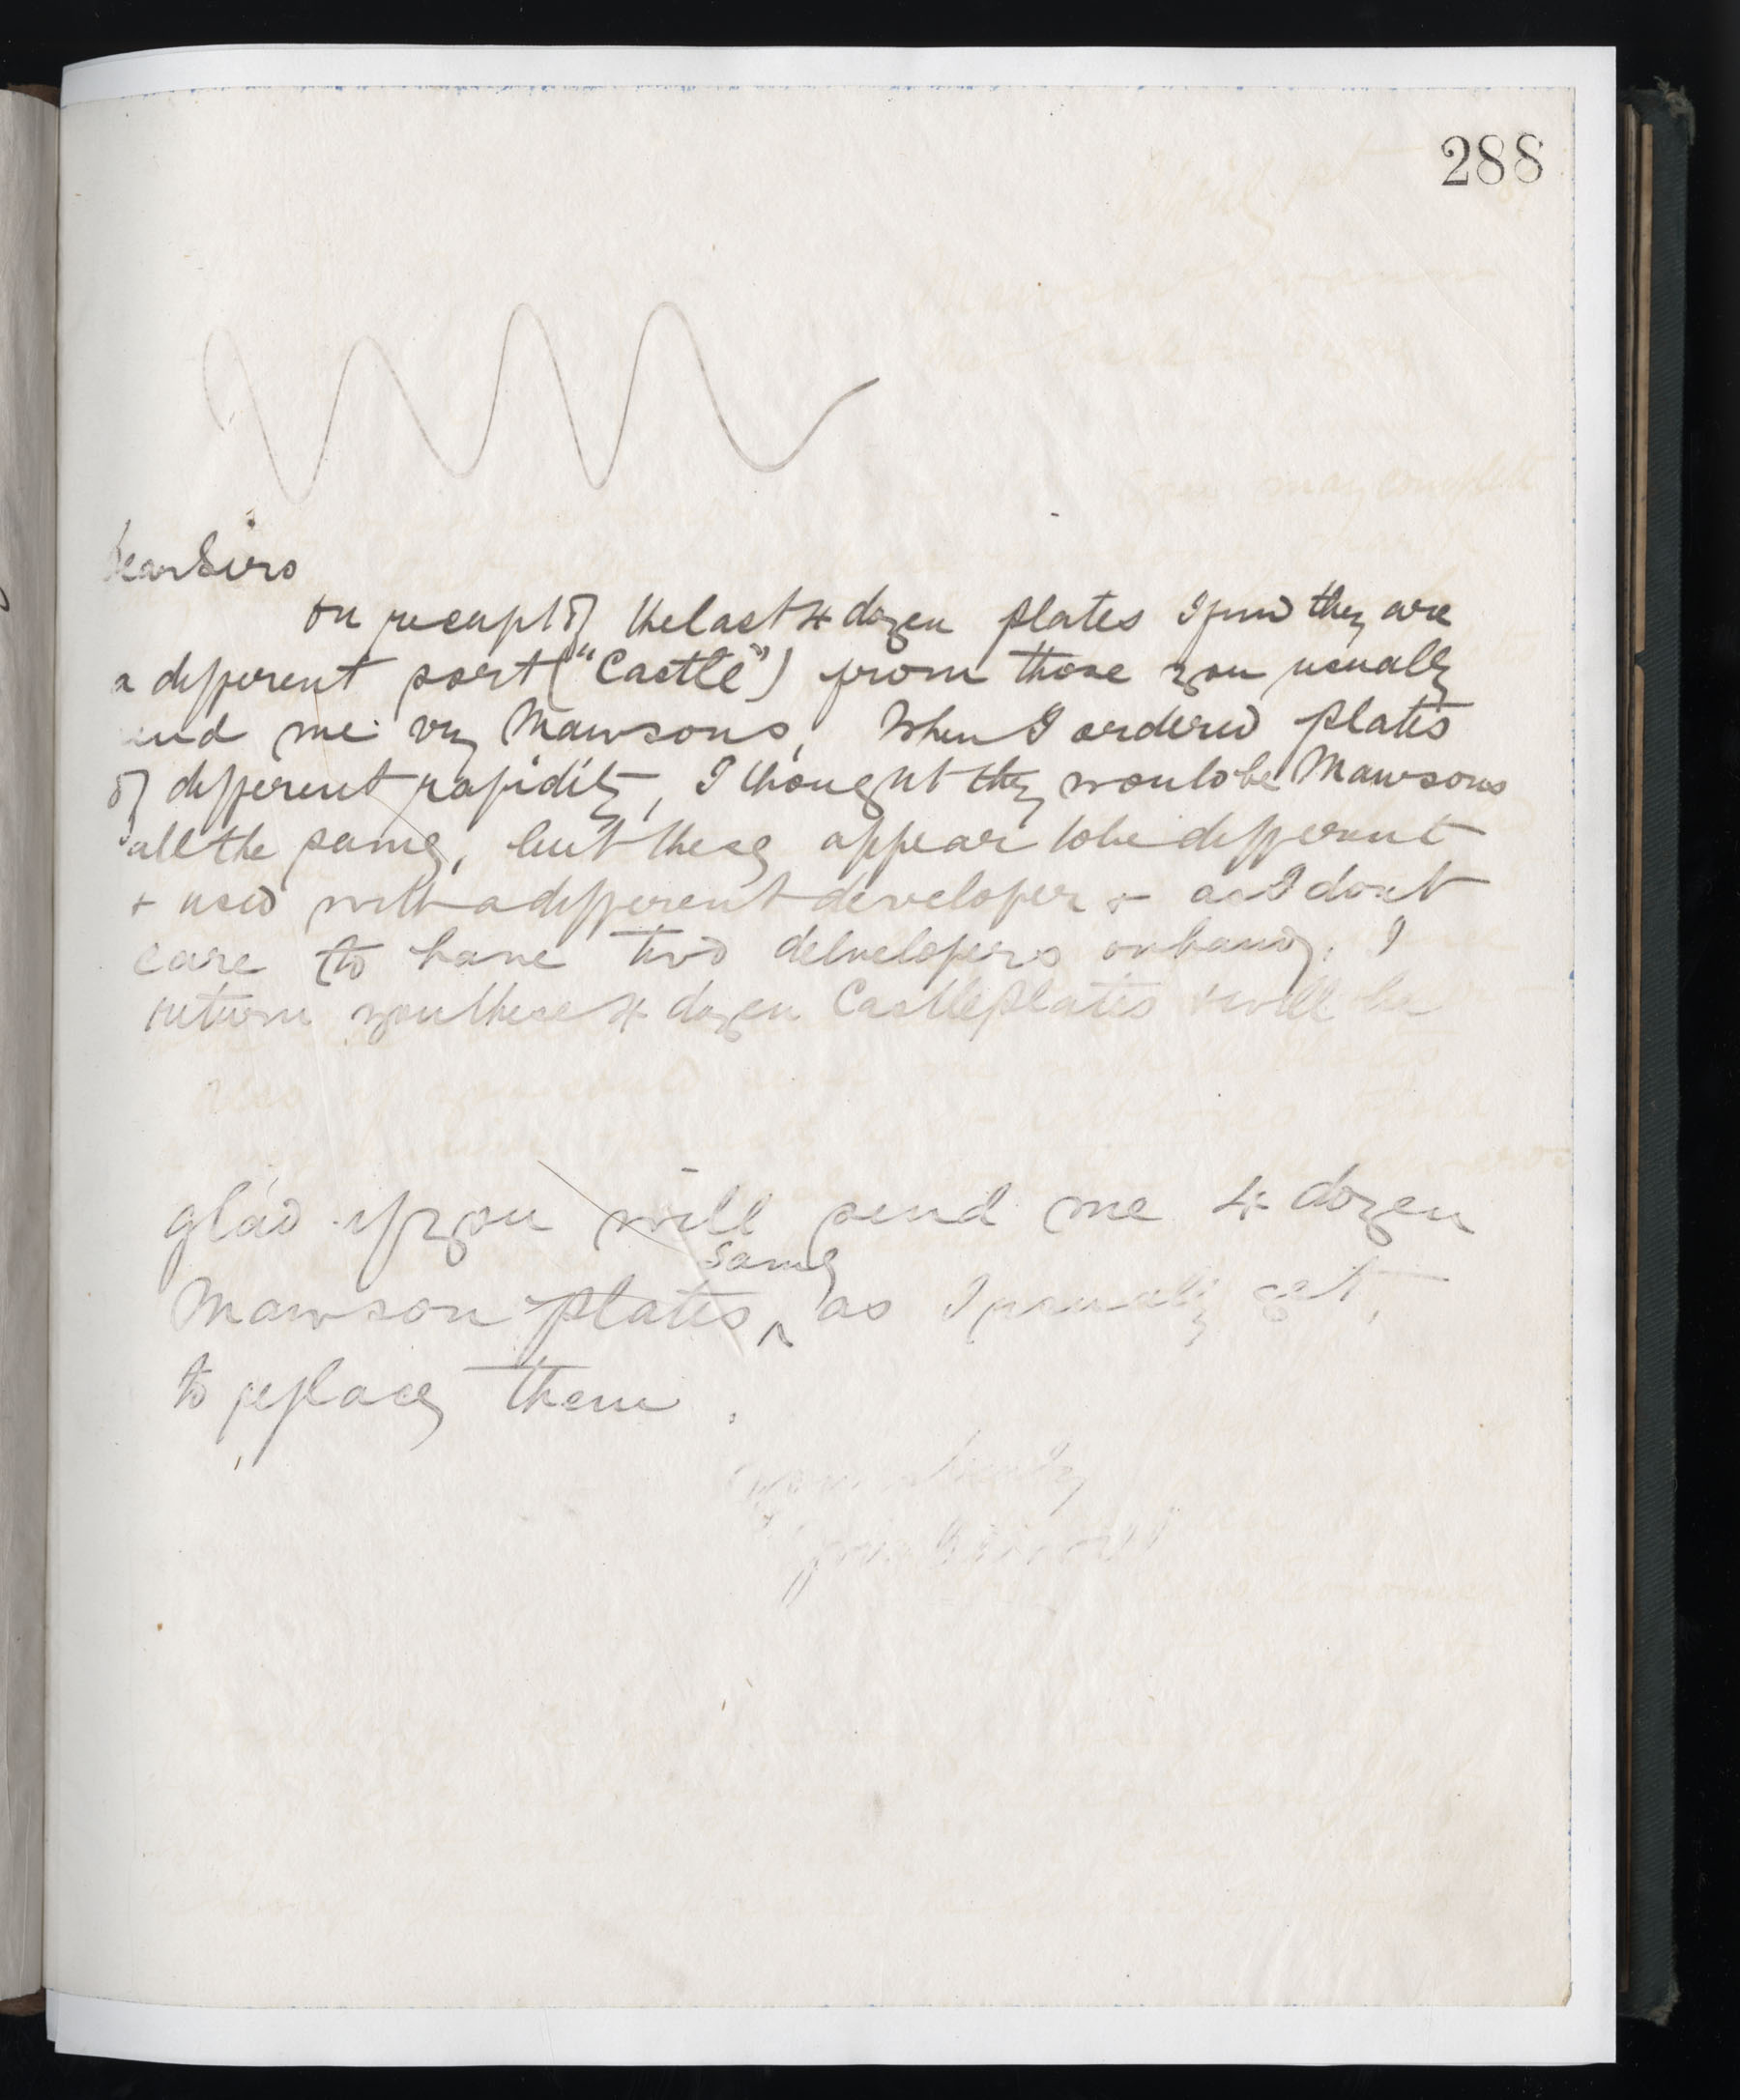 288
Dear Sirs
On receipt of the last 4 dozen plates I find they are
a different sort ("Castle") from those you usually
send me viz Mawsons, When I ordered plates
of different rapidity, I thought they would be Mawsons
all the same, but these appear to be different
+ used with a different developer + as I dont
care to have two delvelopers on hand, I
return you these 4 dozen Castle plates + will be
glad if you will send me 4 dozen
same
Mawson plates ^ as I usually get,
to replace them.